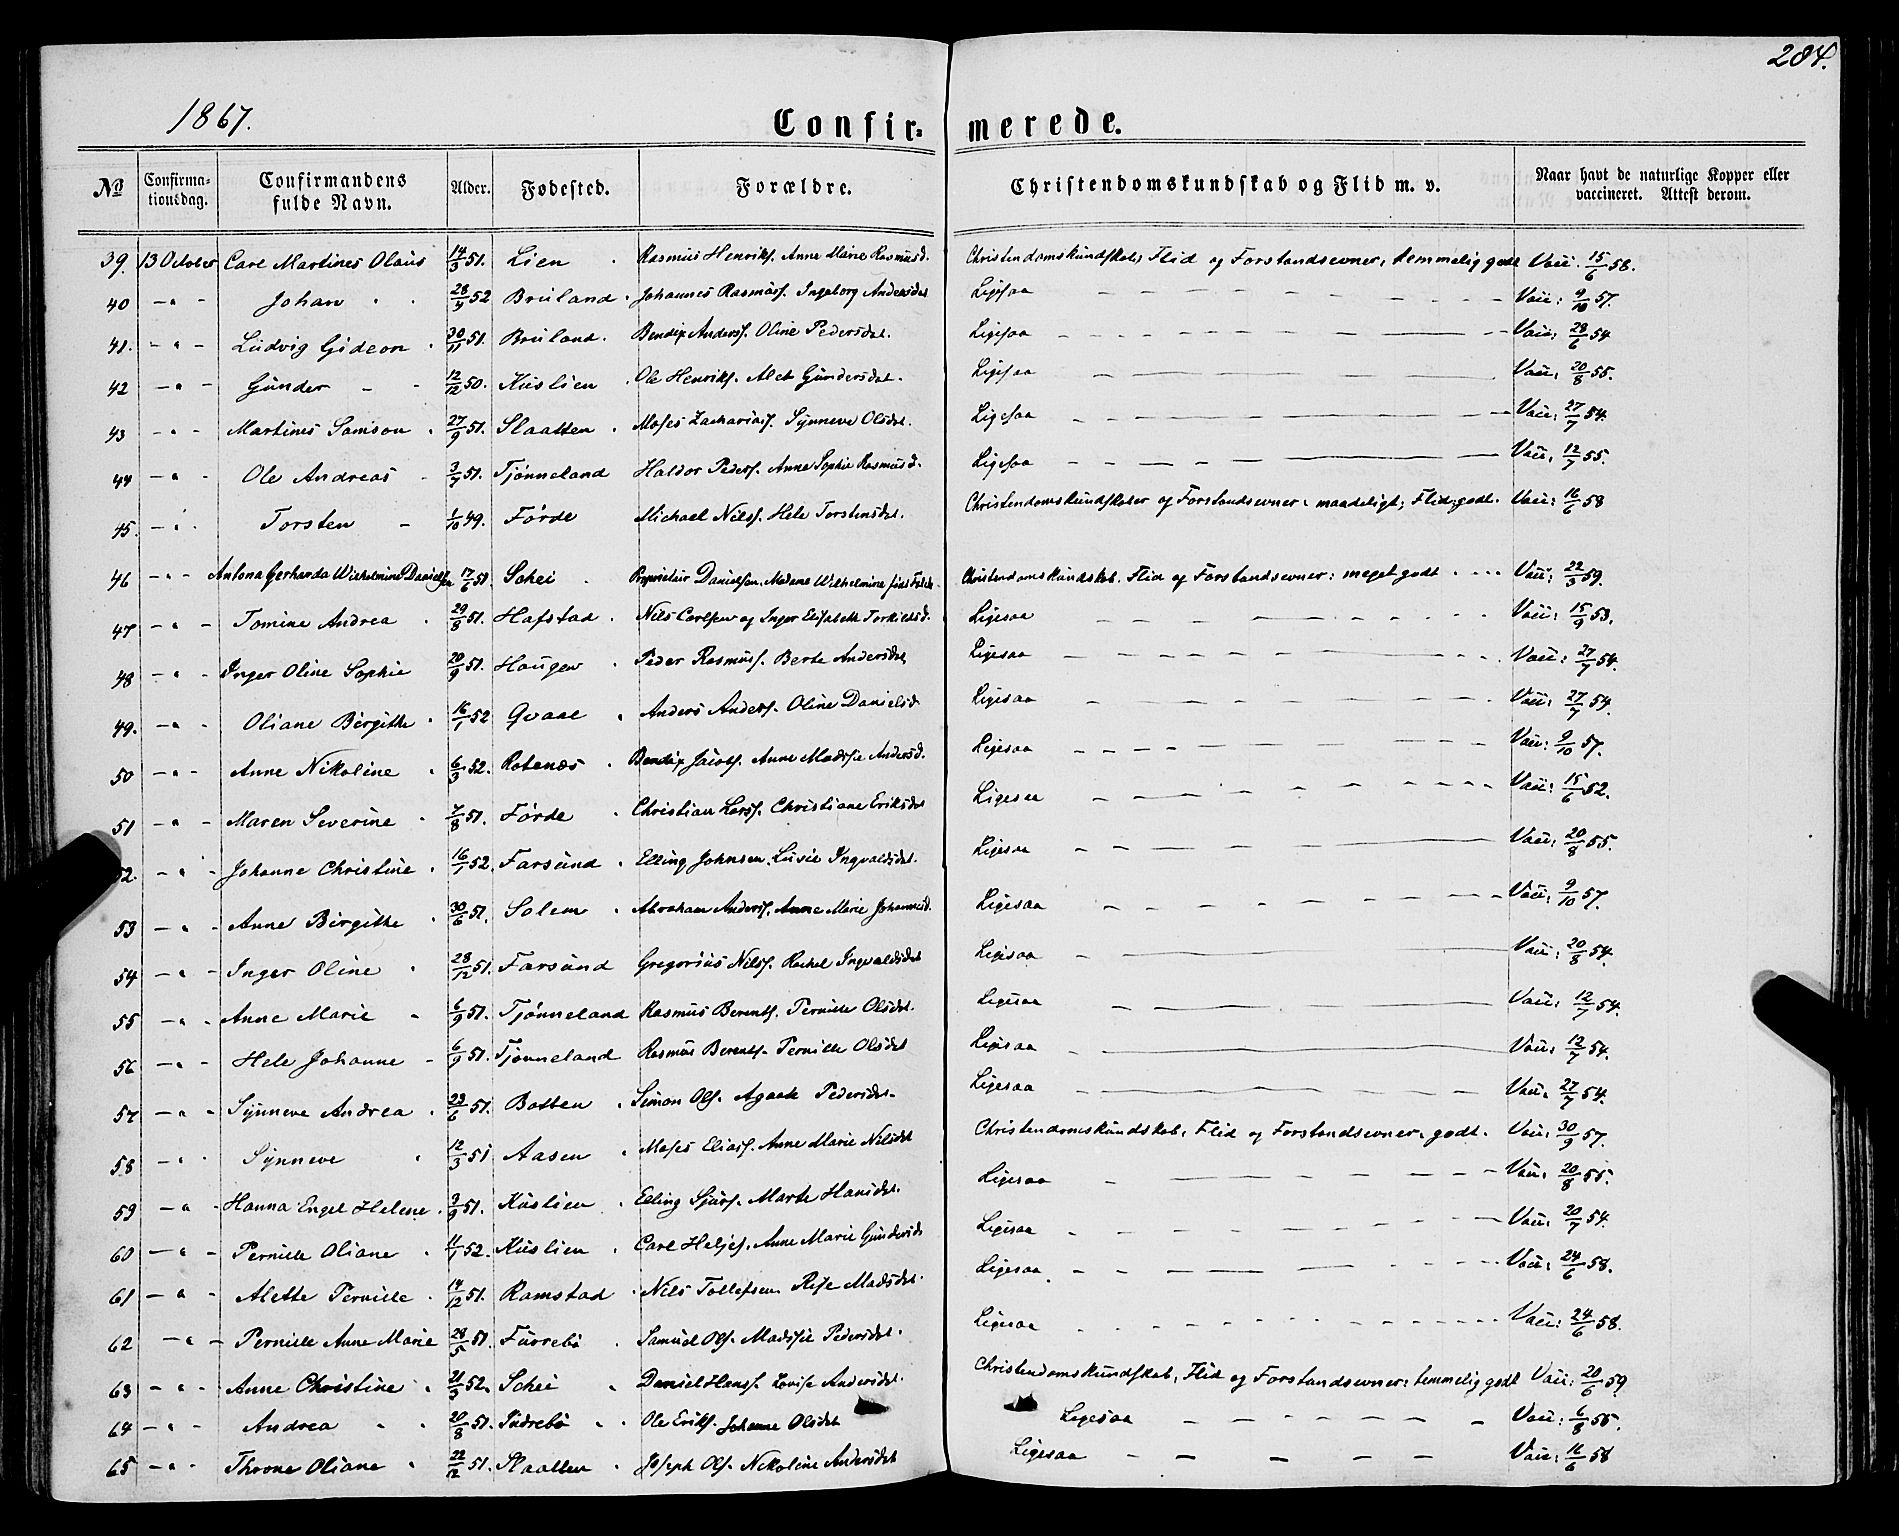 284.
1867.
Confir- merede.
No Confirmationsdag. Confirmandens fulde Navn. Alder. Fødested. Forældre. Christendomskundskab og Flid m. v. Naar havt de naturlige Kopper eller vaccineret. Attest derom.
39. 13 October Carl Martines Olaus 14/3 51. Lien Rasmus Henriks. Anne Marie Rasmusd. Christendomskundskab, Flid og Forstandsevner: temmelig godt Vacc. 15/6 58.
40 - " - Johan 28/4 52 Bruland Johannes Rasmuss. Ingeborg Andersdat Ligesaa Vacc: 9/10 57.
41. - " - Ludvig Gideon 20/11 51. Bruland. Bendix Anderss. Oline Pedersdat. Ligesaa Vacc: 28/6 54
42 - " - Gunder 12/12 50. Kuslien Ole Henriks. Alet Gundersdat. Ligesaa Vacc: 20/8 55.
43 - " - Martines Samson 27/9 51. Slaatten Moses Zacharias. Synneve Olsdat. Ligesaa Vacc: 27/7 54.
44 - " - Ole Andreas 3/7 51. Tjønneland Haldor Peders. Anne Sophie Rasmusd. Ligesaa Vacc: 12/7 55.
45. - " - Torsten 1/10 49. Førde Michael Nilss. Hele Torstensdat. Christendomskundskaber og Forstandsevner: maadeligt; Flid: godt. Vacc: 16/6 58
46 - " - Antona Gerharda Wilhelmine Danielsen 17/6 51. Schei Proprietair Danielsen, Madame Wilhelmine født Falch Christendomskundskab, Flid og Forstandsevner: meget godt Vacc: 22/3 59.
47 - " - Tomine Andrea 29/8 51. Hafstad Nils Carlsen og Inger Elisabeth Torkildsd. Ligesaa Vacc: 15/9 53.
48 - " - Inger Oline Sophie 20/9 51. Haugen Peder Rasmuss. Berte Andersdat Ligesaa Vacc: 27/7 54.
49. - " - Oliane Birgitte 16/1 52 Qvaal Anders Anders. Oline Danielsd. Ligesaa Vacc: 27/7 54.
50 - " - Anne Nikoline 6/3 52. Rotenæs Bendix Jacobs. Anne Madssie Andersd. Ligesaa Vacc: 9/10 57.
51 - " - Maren Severine 7/8 51. Førde Christian Larss. Christiane Eriksdat Ligesaa Vacc: 15/6 52.
52. - " - Johanne Christine 16/1 52. Farsund Elling Johnsen. Lusie Ingvaldsdat. Ligesaa Vacc: 20/8 55.
53 - " - Anne Birgitte 30/6 51. Solem Abraham Anders. Anne Marie Johannesd. Ligesaa Vacc: 9/10 57.
54 - " - Inger Oline 28/12 51. Farsund Gregorius Nilss. Rachel Ingvaldsdat Ligesaa Vacc: 20/8 54.
55 - " - Anne Marie 6/9 51. Tjønneland Rasmus Berents. Pernille Olsdat. Ligesaa Vacc: 12/7 54.
56 - " - Hele Johanne 6/9 51. Tjønneland Rasmus Berents. Pernille Olsdat Ligesaa Vacc: 12/7 54.
57 - " - Synneve Andrea 23/6 51. Botten Simon Ols. Agaate Pedersdat. Ligesaa Vacc. 27/7 54.
58 - " - Synneve 12/3 51 Aasen Moses Elias. Anne Marie Nilsdat Christendomskundskab, Flid og Forstandsevner: godt. Vacc: 30/9 57.
59 - " - Hanna Engel Helene 9/9 51. Kuslien Elling Sjurs. Marte Hansdat. Ligesaa Vacc: 20/8 55.
60 - " - Pernille Oliane 11/1 52. Kuslien Carl Heljes. Anne Marie Gundersd. Ligesaa Vacc: 20/7 54.
61 - " - Alette Pernille 14/12 51. Ramstad Nils Tollefsen Rise Madsdat. Ligesaa Vacc: 24/6 58.
62 - " - Pernille Anne Marie 28/5 51. Furrebø Samuel Ols. Madssie Pedersdat. Ligesaa Vacc: 24/6 58.
63 - " - Anne Christine 21/3 52. Schei Daniel Hanss. Lovise Andersdat. Christendomskundskab, Flid og Forstandsevner: temmelig godt Vacc: 20/6 59
64 - " - Andrea 20/8 51. Indrebø Ole Eriks. Johanne Olsdat Ligesaa Vacc: 6/8 55.
65 - " - Throne Oliane 22/12 51. Slaatten Joseph Ols. Nikoline Andersdat Ligesaa Vacc: 16/6 58